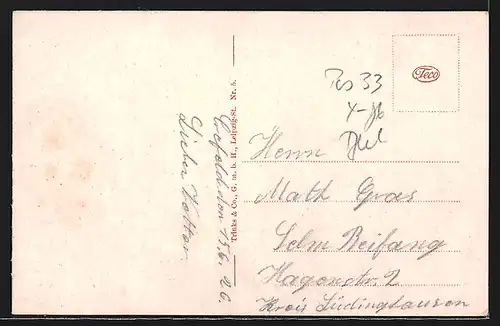 Lieber Vetter
Crefeld den 13.6.26.
Trinks & Co., G. m. b. H., Leipzig-St. Nr. 5.
Teco
33
Herrn
Math Gras
Selm Beifang
Hagenstr. 2
Kreis Lüdinghausen